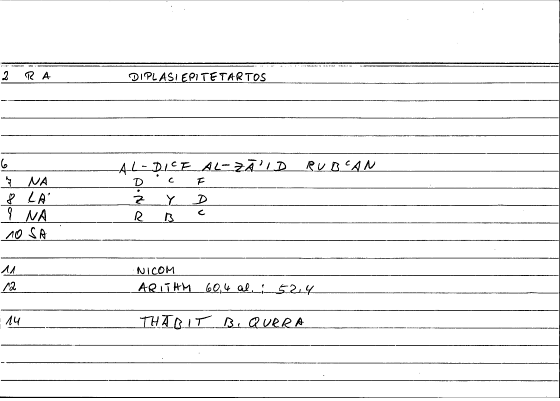 2 R A DIPLASIEPITETARTOS
6 AL-ḌIʿF AL-ZĀʾID RUBʿAN
7 NA Ḍ ʿ F
8 LA' Z Y D
9 NA R B ʿ
10 SA
11 NICOM
12 ARITHM 60,4 al.: 52,4
14 THĀBIT B. QURRA